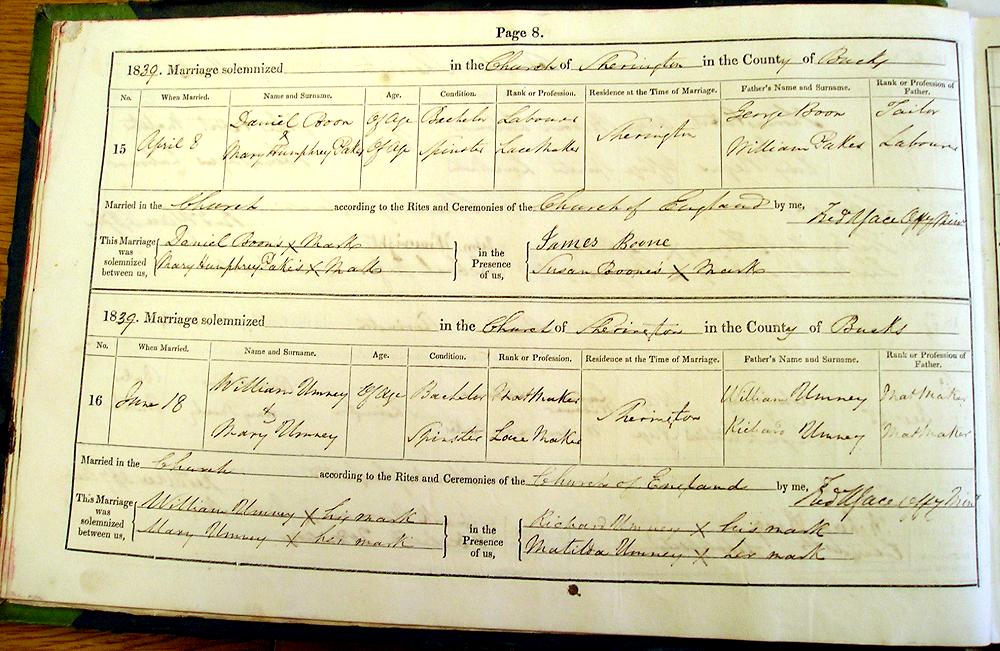 Page 8.
1839. Marriage solemnized in the Church of Sherington in the County of Bucks
No. When Married. Name and Surname. Age. Condition. Rank or Profession. Residence at the Time of Marriage. Father's Name and Surname. Rank or Profession of Father.
15 April 8 Daniel Boon of Age Bachelor Labourer Sherington George Boon Tailor
&
Mary Humphrey Pakes Of Age Spinster Lace Maker William Pakes Labourer
Married in the Church according to the Rites and Ceremonies of the Church of England by me,
This Marriage was solemnized between us, Daniel Boons X Mark in the Presence of us, James Boone
Mary Humphrey Pakes X Mark Susan Boone's X Mark
1839. Marriage solemnized in the Church of Sherington in the County of Bucks
No. When Married. Name and Surname. Age. Condition. Rank or Profession. Residence at the Time of Marriage. Father's Name and Surname. Rank or Profession of Father.
16 June 18 William Umney of Age Bachelor Mat Maker Sherington William Umney Mat Maker
&
Mary Umney Spinster Lace Maker Richard Umney Mat Maker
Married in the Church according to the Rites and Ceremonies of the Church of England by me,
This Marriage was solemnized between us, William Umney X his mark in the Presence of us, Richard Umney X his mark
Mary Umney X her mark Matilda Umney X her mark